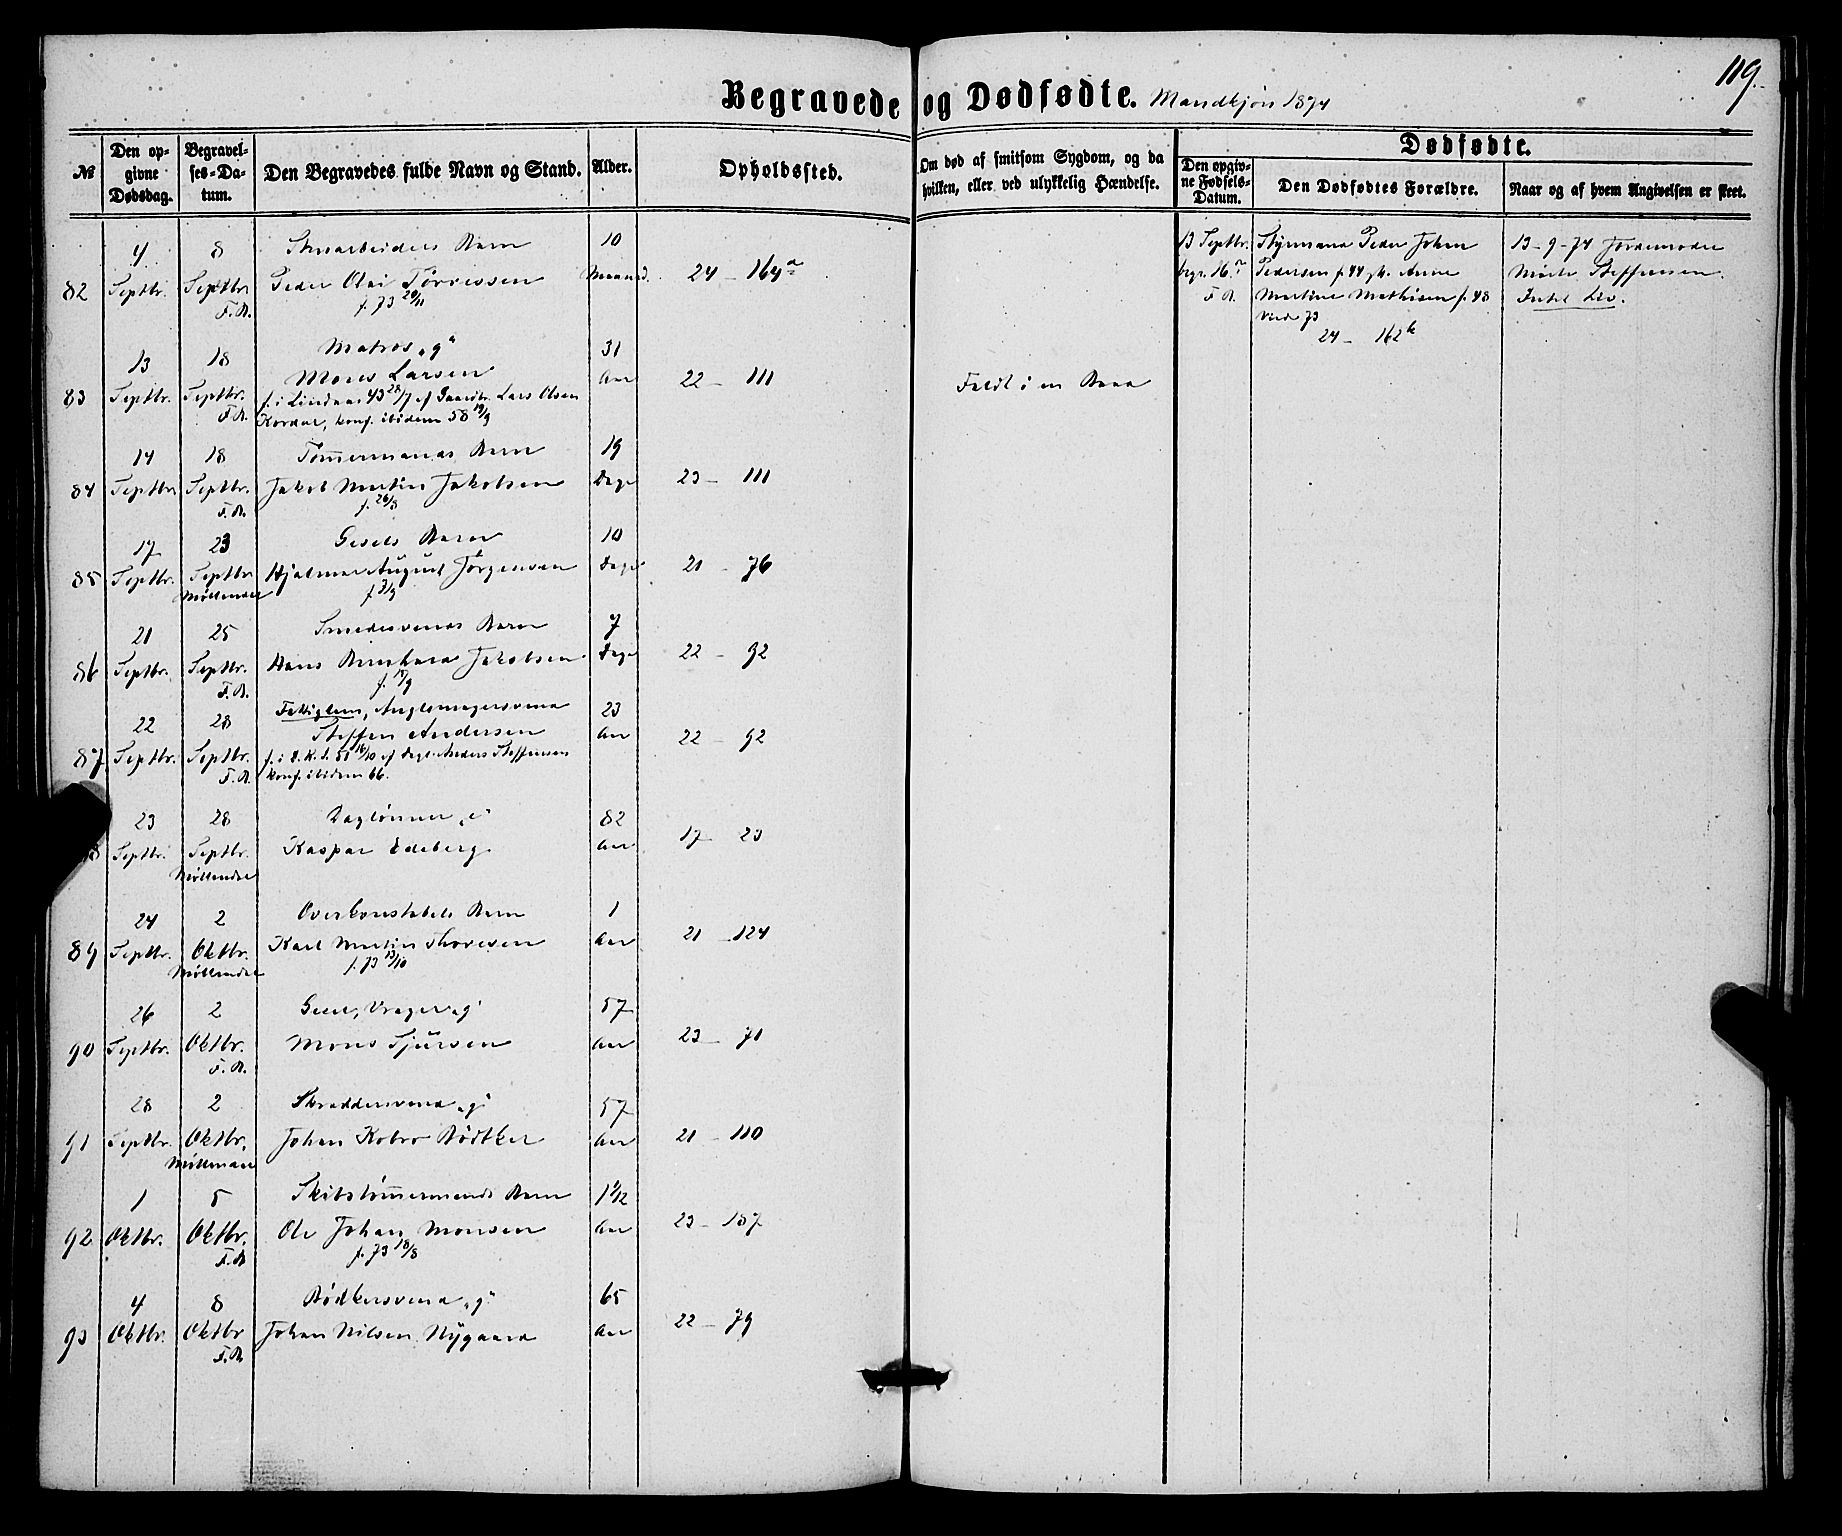 119.
Begravede og Dødfødte. Mandkjøn 1874
№
Den opgivne Dødsdag.
Begravelses-Datum.
Den Begravedes fulde Navn og Stand.
Alder.
Opholdssted.
Om død af smitsom Sygdom, og da hvilken, eller ved ulykkelig Hændelse.
Dødfødte.
Den opgivne Fødsels-Datum.
Den Dødfødtes Forældre.
Naar og af hvem Angivelsen er skeet.
82 4 Septbr. 8 Septbr. F.A. Barn 10 Maaned. 24 – 164a
Peder Olai
f. 73 20/11
13 Septbr. begr. 16. F.A.
Styrmand Peder Johan
Pedersen f. 44 Anne
Martine Mathisen f. 48
viede 73
24 – 162b
13-9-74 Jordemoder
Steffensen.
Intet Liv.
83 13 Septbr. 18 Septbr. F.A. Matros „g“ 31 Aar 22 – 111
Mons Larsen
f. i Lindaas 43 28/7 af Gaardbr. Lars Olsen
konf. ibidem 58 19/9
Faldt i en Baad
84 14 Septbr. 18 Septbr. F.A. Tømermands Barn 19 Dage 23 – 111
Jakob Martin Jakobsen
f. 26/8
85 17 Septbr. 23 Septbr. Møllendal Gesels Barn 10 Dage 21 – 76
Hjalmar August Jørgensen
f. 7/9
86 21 Septbr. 25 Septbr. F.A. Smedesvends Barn 7 Dage 22 – 92
Hans Bernhard Jakobsen
87 22 Septbr. 28 Septbr. F.A. Fattiglem, 23 Aar 22 – 92
Steffen Andersen
f. i D. K. S. 51 16/10 af Dagl. Anders Steffensen
konf. ibidem 66.
23 Septbr. 28 Septbr. Møllendal Daglønner „e“ 82 Aar 17 – 23
Kaspar Edeberg
89 24 Septbr. 2 Oktbr. Møllendal Overkonstabels Barn 1 Aar 21 – 124
Karl Martin Thoresen
f. 73 13/10
90 26 Septbr. 2 Oktbr. F.A. Vrager „g“ 57 Aar 23 – 71
Mons Sjursen
91 28 Septbr. 2 Oktbr. Møllendal Skræddersvend „g“ 57 Aar 21 – 110
Johan Kobro Bødtker
92 1 Oktbr. 5 Oktbr. F.A. Skibstømermands Barn 1 1/12 Aar 23 – 157
Ole Johan Monsen
f. 73 18/8
93 4 Oktbr. 8 Oktbr. F.A. Bødkersvend „g“ 65 Aar 22 – 79
Johan Nilsen Nygaard